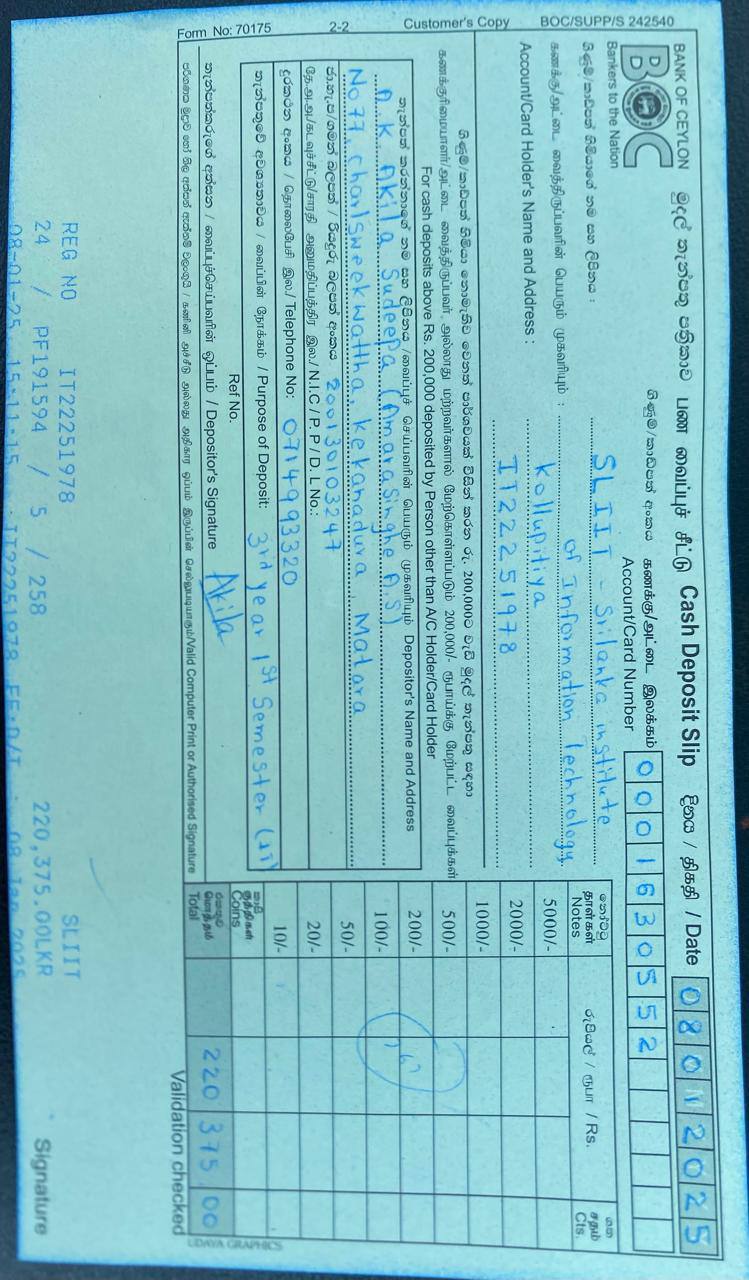 Form No: 70175 2-2 Customer's Copy BOC/SUPP/S 242540
BANK OF CEYLON
BOC
Bankers to the Nation
මුදල් තැන්පතු පත්‍රිකාව பண வைப்புச் சீட்டு Cash Deposit Slip දිනය / திகதி / Date 08 01 2025
ගිණුම්/කාඩ්පත් අංකය கணக்கு/அட்டை இலக்கம்
Account/Card Number 0001630552
ගිණුම්/කාඩ්පත් හිමියාගේ නම සහ ලිපිනය :
கணக்கு/அட்டை வைத்திருப்பவரின் பெயரும் முகவரியும் :
Account/Card Holder's Name and Address :
SLIIT - Srilanka institute
of Information Technology,
kollupitiya
IT22251978
ගිණුම්/කාඩ්පත් හිමියා නොමැතිව වෙනත් පාර්ශවයක් විසින් කරන රු. 200,000ට වැඩි මුදල් තැන්පතු සඳහා
கணக்குரிமையாளர்/அட்டை வைத்திருப்பவர், அல்லாது மற்றவர்களால் மேற்கொள்ளப்படும் 200,000/- ரூபாய்க்கு மேற்பட்ட வைப்புக்கள்
For cash deposits above Rs. 200,000 deposited by Person other than A/C Holder/Card Holder
තැන්පත් කරන්නාගේ නම සහ ලිපිනය /வைப்புச் செய்பவரின் பெயரும் முகவரியும் Depositor's Name and Address
A. K. Akila Sudeepa (Amarasinghe A.S)
No 77, charlsweekwattha, kekanadura, Matara
ජා.හැ.ප/ගමන් බලපත් / රියදුරු බලපත් අංකය
தே.அ.அ/கடவுச்சீட்டு/சாரதி அனுமதிப்பத்திர இல./N.I.C / P. P / D. L No.: 200130103247
දුරකථන අංකය / தொலைபேசி இல./ Telephone No: 0714993320
තැන්පතුවේ අවශ්‍යතාවය / வைப்பின் நோக்கம் / Purpose of Deposit: 3rd year 1st Semester
Ref No.
තැන්පත්කරුගේ අත්සන / வைப்புச்செய்பவரின் ஒப்பம் / Depositor's Signature Akila
Valid Computer Print or Authorised Signature
නෝට්ටු
தாள்கள்
Notes
රුපියල් / ரூபா / Rs.
ශත
சதம்
Cts.
5000/-
2000/-
1000/-
500/-
200/-
100/-
50/-
20/-
10/-
කාසි
குத்திகள்
Coins
එකතුව
மொத்தம்
Total 220 375 00
Validation checked
UDAYA GRAPHICS
REG NO IT22251978 SLIIT
24 / PF191594 / 5 / 258 220,375.00LKR Signature